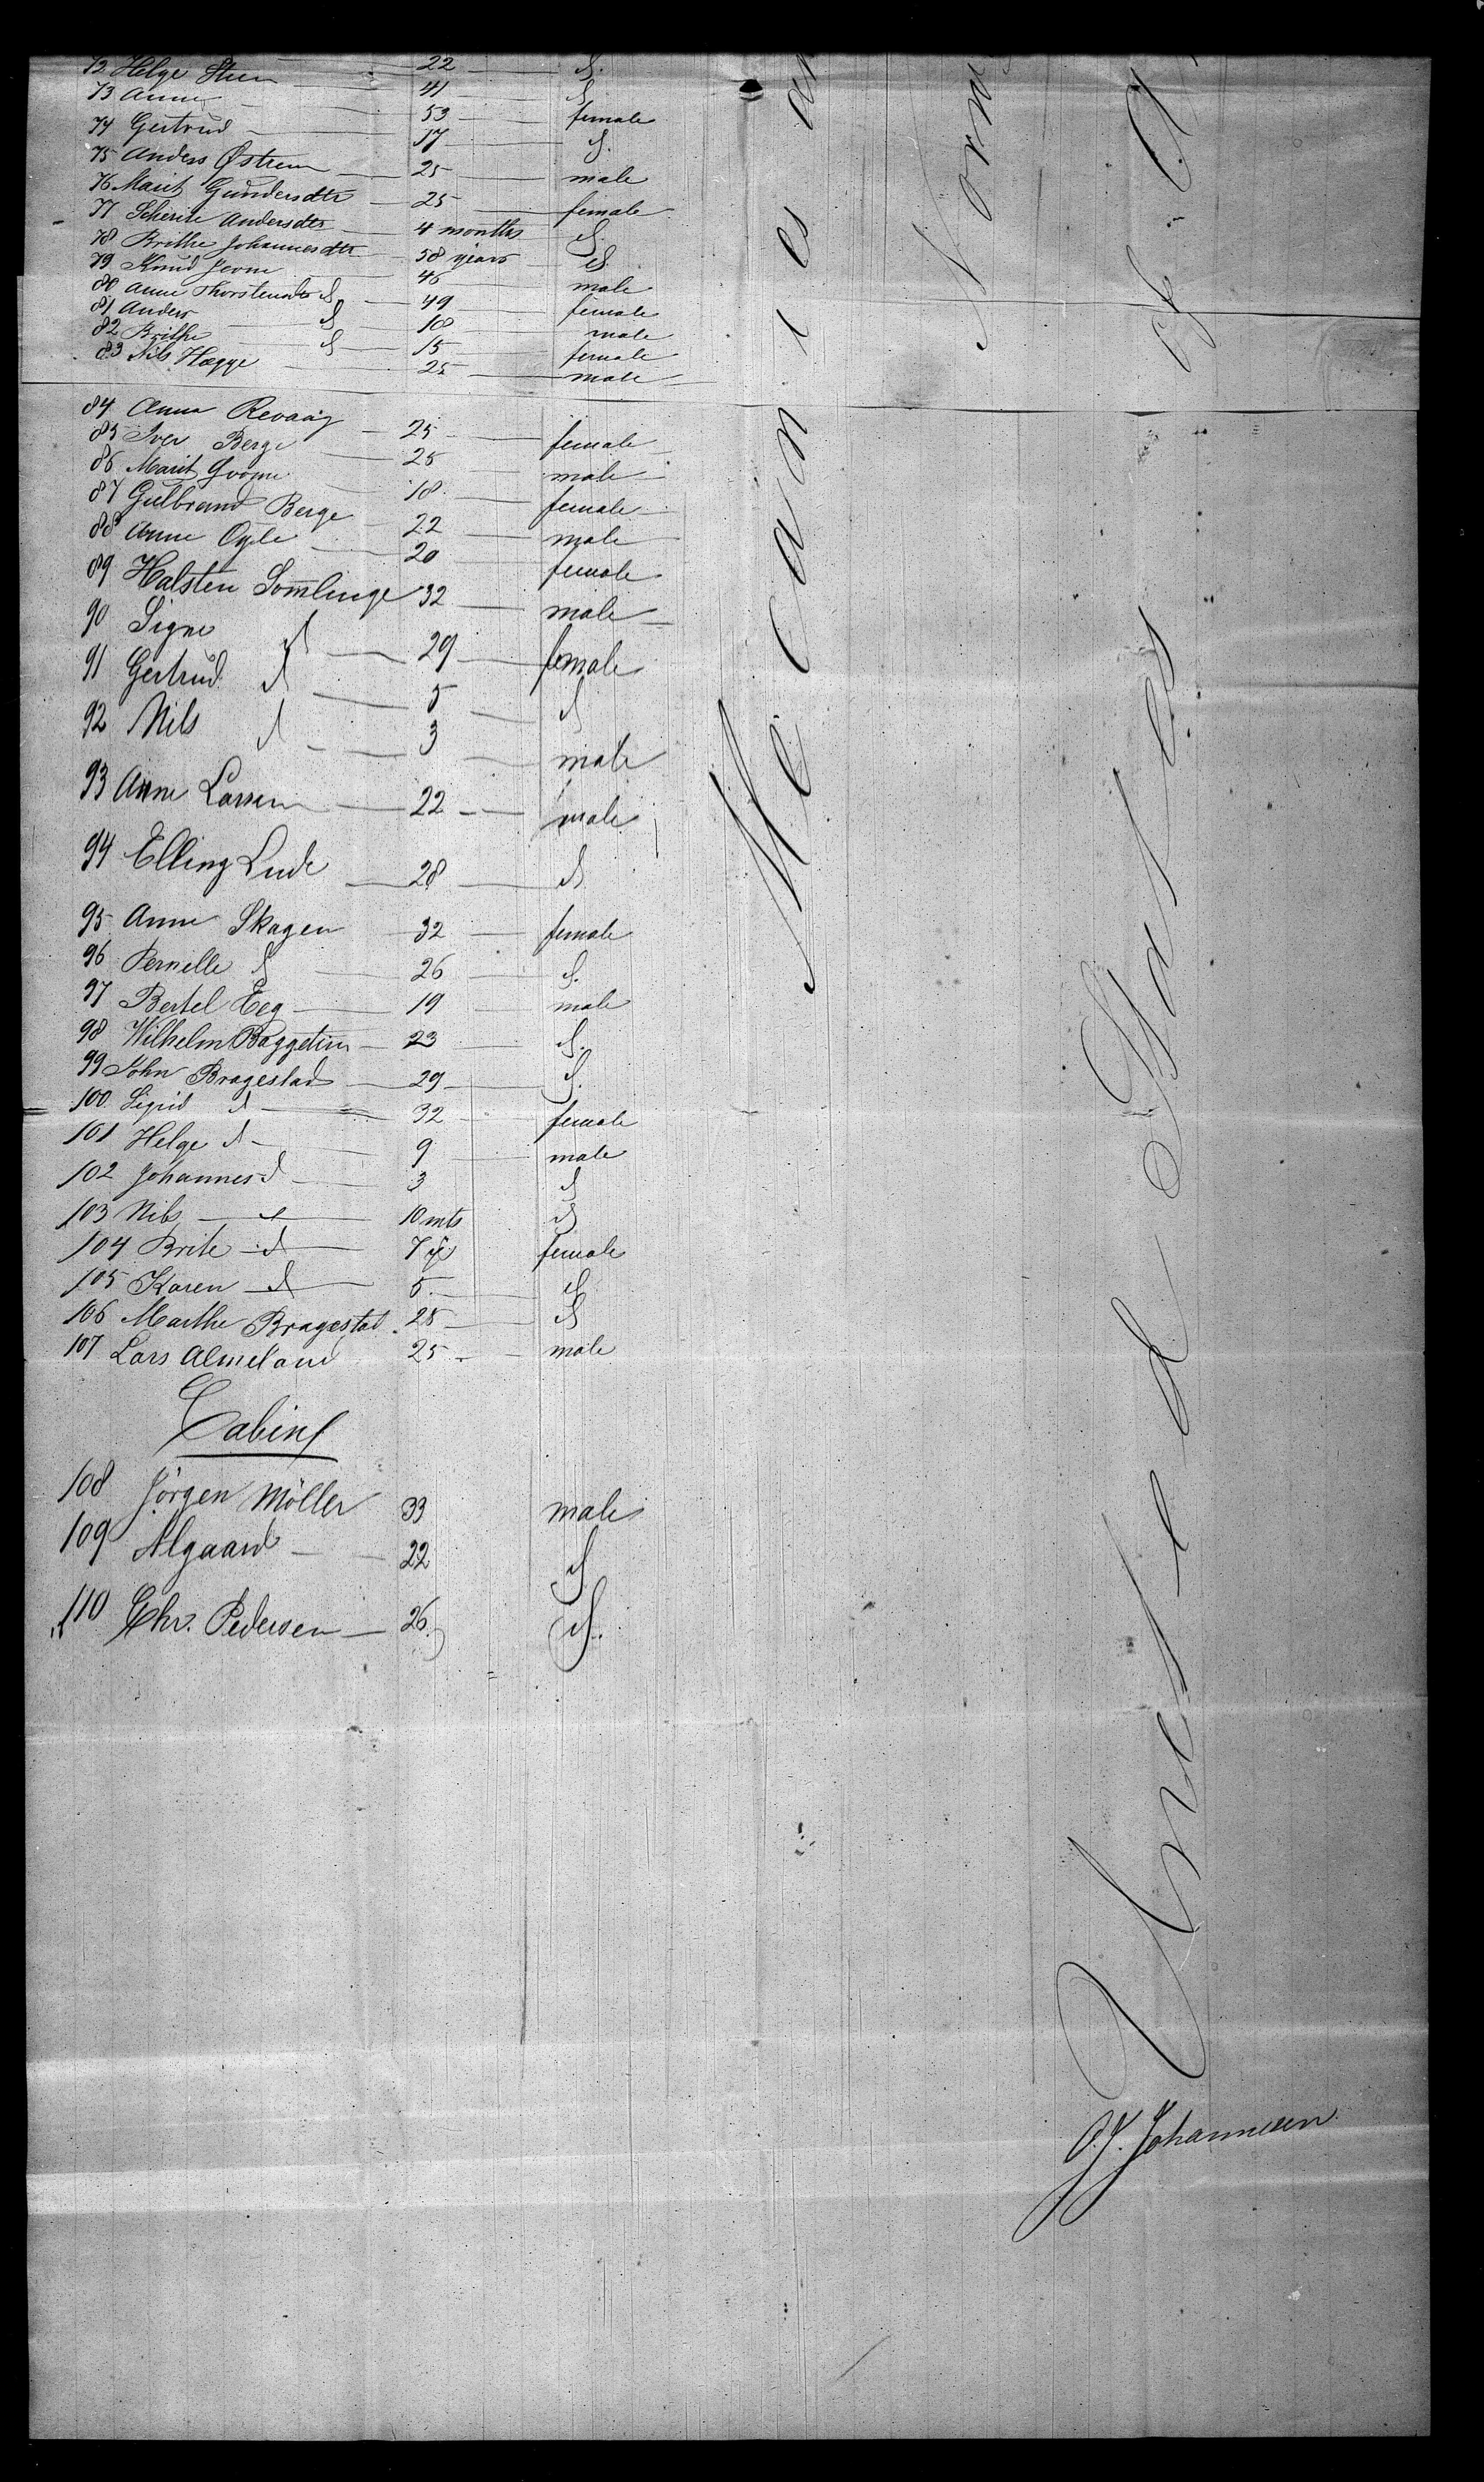 72 Helge Steen 22 d.
73 Anne 41 d
74 Gertrud 53 female
75 Anders Østrem 17 d.
76 Marit Gundersdtr 25 male
77 Andersdtr 25 female
78 Brithe Johannesdtr 4 months d.
79 Knud 58 years d.
80 Anne Thorstensdtr d 46 male
81 Anders d 49 female
82 Brithe d 18 male
83 Nils Hægge 15 female
25 male
84 Anna Revaag 25 female
85 Iver Berge 25 male
86 Marit 18 female
87 Gulbrand Berge 22 male
88 Anne 20 female
89 Halsten Somlinge 32 male
90 Signe d 29 female
91 Gertrud d 5 d
92 Nils d 3 male
93 Anne Larsen 22 male
94 Elling Lude 28 d
95 Anne Skagen 32 female
96 Pernille d 26 d.
97 Bertel Eeg 19 male
98 Wilhelm 23 d.
99 John Bragestad 29 d.
100 Sigrid d 32 female
101 Helge d 9 male
102 Johannes d 3 d
103 Nils d 10 mts d
104 Brite d 7 y female
105 Karen d 5 d
106 Marthe Bragestad 28 d
107 Lars Almeland 25 male
Cabin
108 Jörgen Möller 33 male
109 Algaard 22 d
110 Chr. Pedersen 26 d.
Mecanics an
Norw
of A
United States
O. J. Johannesen